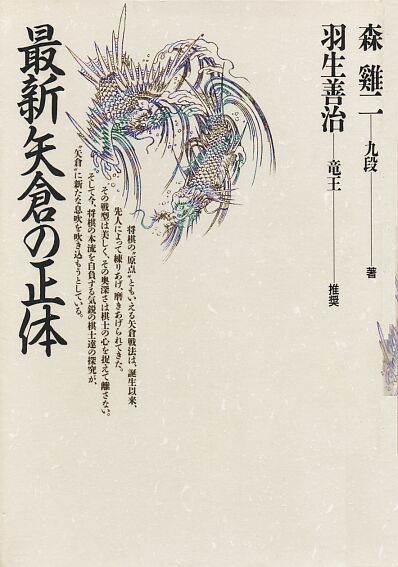 森 雞二―九段―著
羽生善治―竜王―推奨
将棋の〝原点〟ともいえる矢倉戦法は、誕生以来、
先人によって練りあげ、磨きあげられてきた。
その戦型は美しく、その奥深さは棋士の心を捉えて離さない。
そして今、将棋の本流を自負する気鋭の棋士達の探究が、
〝矢倉〟に新たな息吹を吹き込もうとしている。
最新矢倉の正体